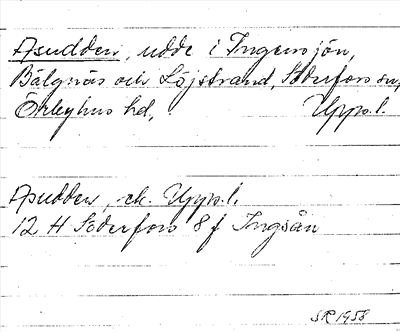 Asudden, udde i Ingensjön,
Bälgnäs och Löjstrand, Söderfors sn,
Örbyhus hd, Upps. l.
Asudden, ek. Upps. l.
12 H Söderfors 8 f Ingsån
SR 1958